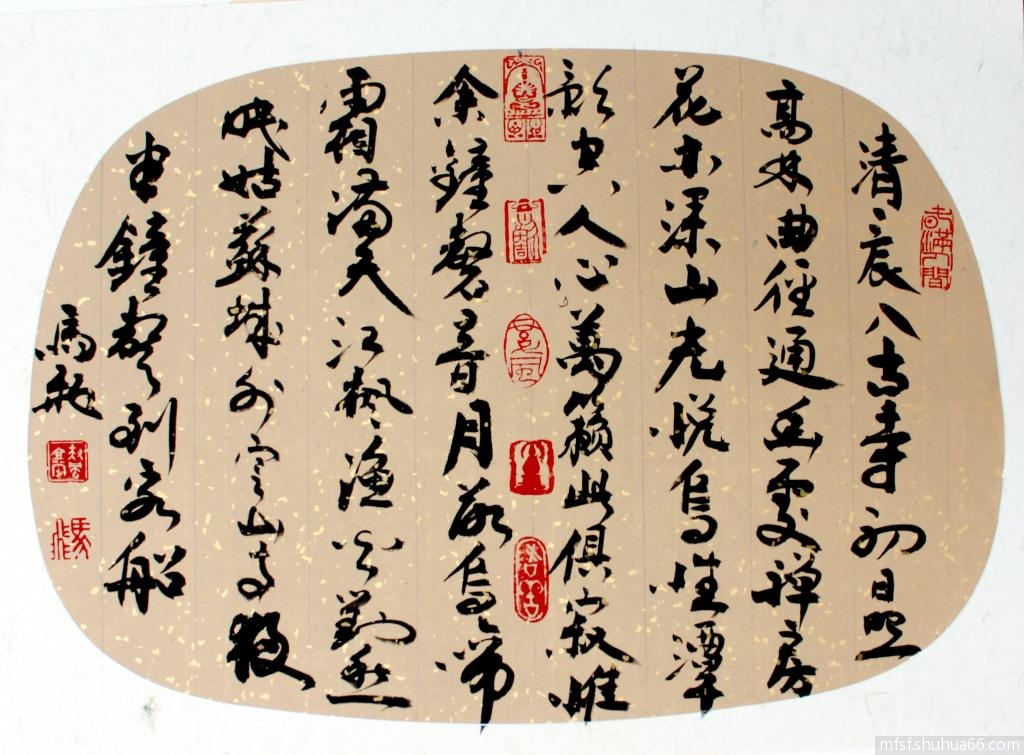 清辰入古寺初日照
高林曲徑通幽處禪房
花木深山光悅鳥性潭
影空人心萬籟此俱寂惟
余鐘磬音月落烏啼
霜滿天江楓漁火對愁
眠姑蘇城外寒山寺夜
半鐘聲到客船
馬飛
mfsf.shuhua66.com